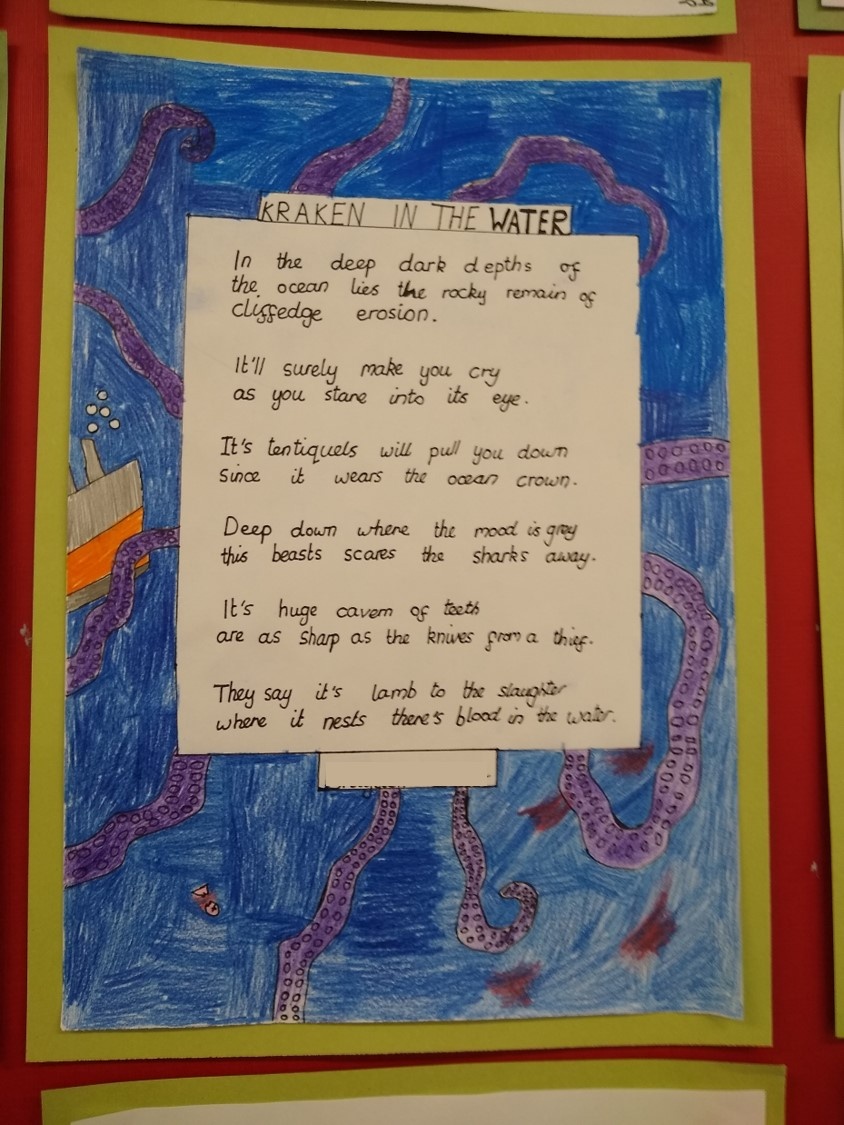 KRAKEN IN THE WATER
In the deep dark depths of
the ocean lies the rocky remain of
cliffedge erosion.
It'll surely make you cry
as you stare into its eye.
It's tentiquels will pull you down
Since it wears the ocean crown.
Deep down where the mood is grey
this beasts scares the sharks away.
It's huge cavern of teeth
are as sharp as the knives from a thief.
They say it's lamb to the slaughter
where it nests there's blood in the water.